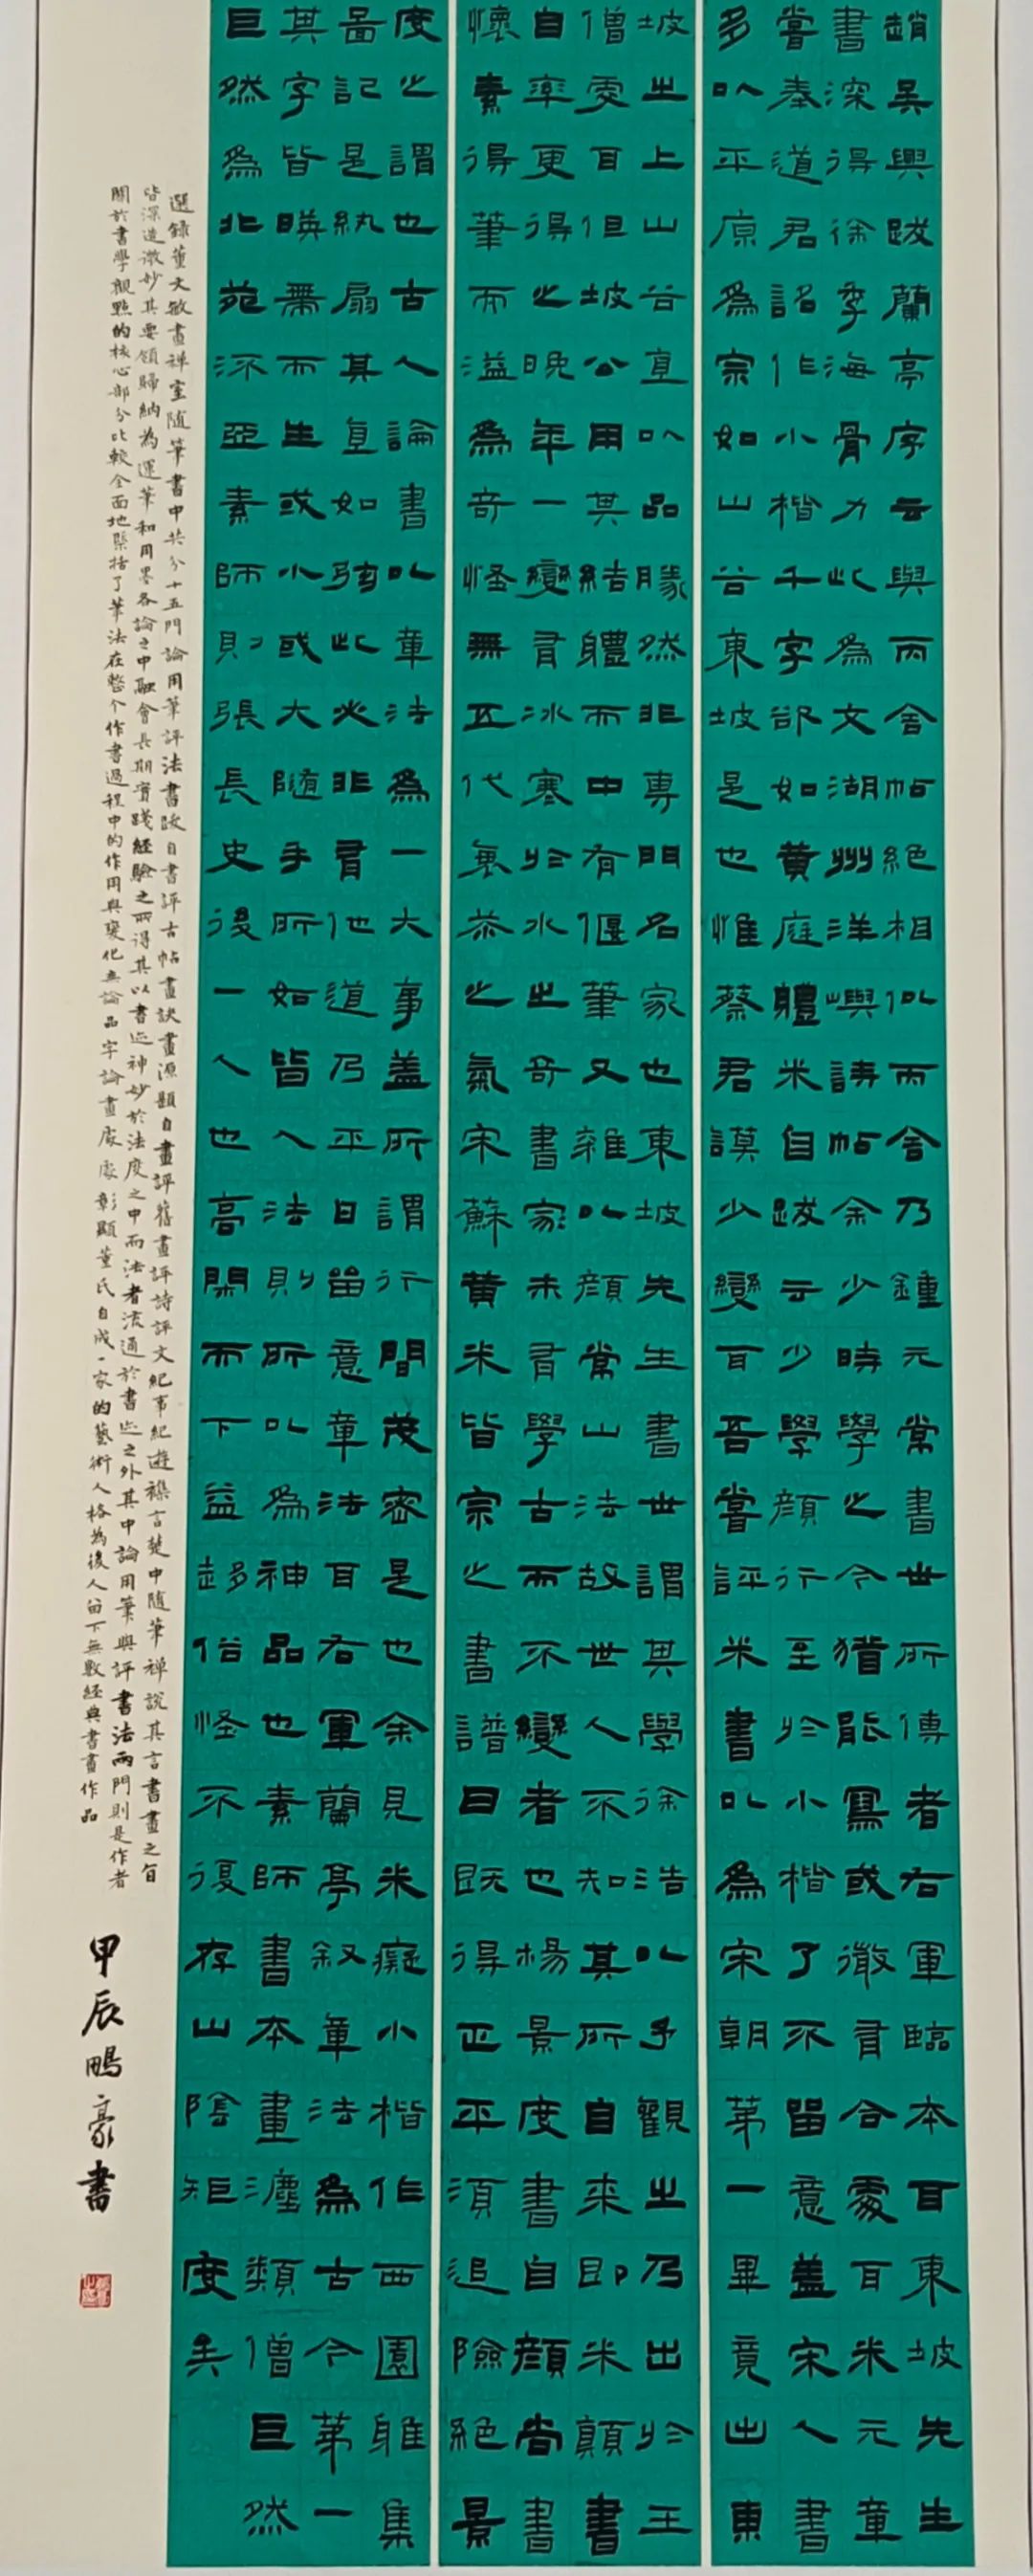 趙吳興跋蘭亭序云與丙舍帖絕相似丙舍乃鍾元常書世所傳者右軍臨本耳東坡先生
書深得徐季海骨力此為文湖州洋嶼詩帖余少時學之今猶能寫或徹有合處耳米元章
嘗奉道君詔作小楷千字欲如黃庭體米自跋云少學顏行至於小楷了不留意蓋宋人書
多以平原為宗如山谷東坡是也惟蔡君謨少變耳吾嘗評米書以為宋朝第一畢竟出東
坡之上山谷直以品勝然非專門名家也東坡先生書世謂其學徐浩以予觀之乃出於王
僧虔耳但坡公用其結體而中有偃筆又雜以顏常山法故世人不知其所自來即米顛書
自率更得之晚年一變有冰寒於水之奇書家未有學古而不變者也楊景度書自顏尚書
懷素得筆而溢為奇怪無五代衰苶之氣宋蘇黃米皆宗之書譜曰既得正平須追險絕景
度之謂也古人論書以章法為一大事蓋所謂行間茂密是也余見米癡小楷作西園雅集
圖記是紈扇其直如弦此必非有他道乃平日留意章法耳右軍蘭亭敘章法為古今第一
其字皆映帶而生或小或大隨手所如皆入法則所以為神品也素師書本畫塵類僧巨然
巨然為北苑流亞素師則張長史後一人也高閑而下益趨俗怪不復存山陰矩度矣
選錄董文敏畫禅室随筆書中共分十五門論用筆評法書跋自書評古帖畫訣畫源題自畫評舊畫評詩評文紀事紀遊襍言楚中随筆禅說其言書畫之旨
皆深造微妙其要領歸納為運筆和用墨各論之中融會長期實踐經驗之所得其以書迹神妙於法度之中而法者流通於書迹之外其中論用筆與評書法兩門則是作者
關於書學觀點的核心部分比較全面地槩括了筆法在整个作書過程中的作用與變化無論品字論畫處處彰顯董氏自成一家的藝術人格為後人留下無數經典書畫作品
甲辰豪書